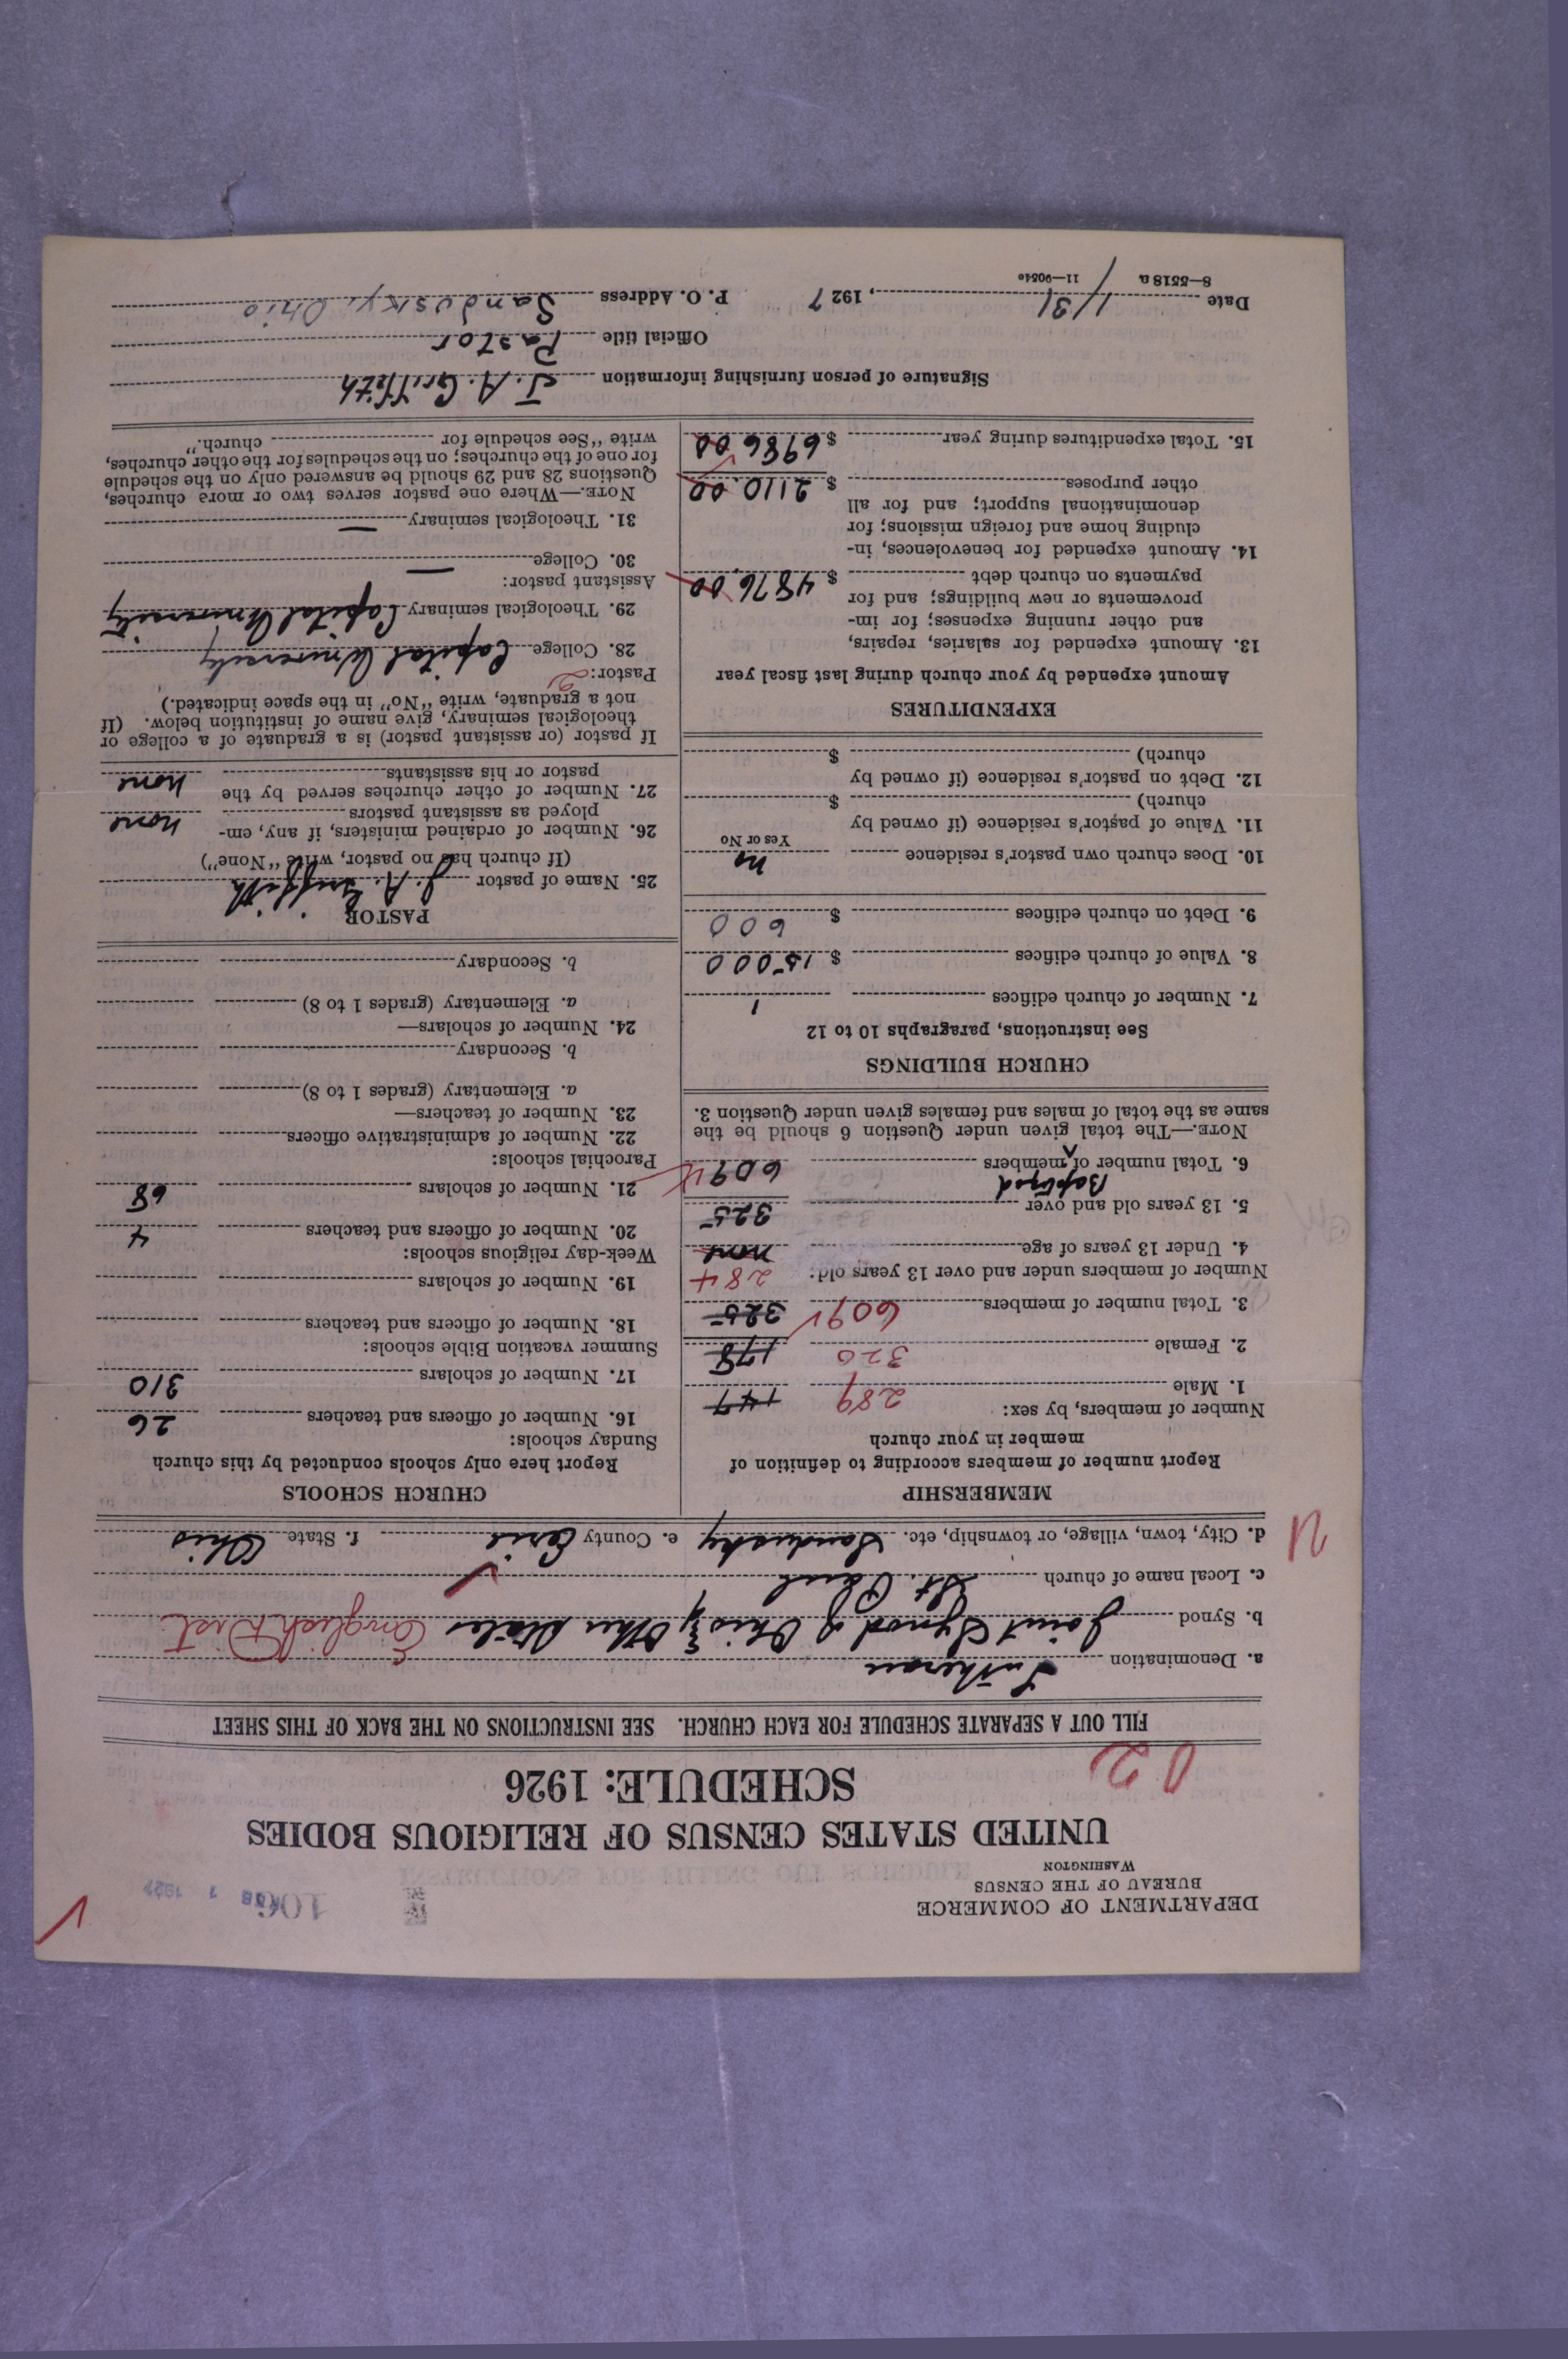 DEPARTMENT OF COMMERCE
BUREAU OF THE CENSUS
WASHINGTON
106
UNITED STATES CENSUS OF RELIGIOUS BODIES
SCHEDULE: 1926
02
FILL OUT A SEPARATE SCHEDULE FOR EACH CHURCH. SEE INSTRUCTIONS ON THE BACK OF THIS SHEET
a. Denomination Lutheran
b. Synod Joint Synod of Ohio & Other States English Dist.
c. Local name of church St. Paul
d. City, town, village, or township, etc. Sandusky e. County Erie f. State Ohio
MEMBERSHIP
Report number of members according to definition of
member in your church
Number of members, by sex:
1. Male 289 147
2. Female 320 178
3. Total number of members 609 325
Number of members under and over 13 years old: 284
4. Under 13 years of age none
5. 13 years old and over 325
Baptized
6. Total number of members 609
NOTE.—The total given under Question 6 should be the
same as the total of males and females given under Question 3.
CHURCH BUILDINGS
See instructions, paragraphs 10 to 12
7. Number of church edifices 1
8. Value of church edifices $ 15000
9. Debt on church edifices $ 600
10. Does church own pastor's residence no
Yes or No
11. Value of pastor's residence (if owned by
church) $
12. Debt on pastor's residence (if owned by
church) $
EXPENDITURES
Amount expended by your church during last fiscal year
13. Amount expended for salaries, repairs,
and other running expenses; for im-
provements or new buildings; and for
payments on church debt $ 4876.00
14. Amount expended for benevolences, in-
cluding home and foreign missions; for
denominational support; and for all
other purposes $ 2110.00
15. Total expenditures during year $ 6986.00
CHURCH SCHOOLS
Report here only schools conducted by this church
Sunday schools:
16. Number of officers and teachers 26
17. Number of scholars 310
Summer vacation Bible schools:
18. Number of officers and teachers
19. Number of scholars
Week-day religious schools:
20. Number of officers and teachers 4
21. Number of scholars 68
Parochial schools:
22. Number of administrative officers
23. Number of teachers—
a. Elementary (grades 1 to 8)
b. Secondary
24. Number of scholars—
a. Elementary (grades 1 to 8)
b. Secondary
PASTOR
25. Name of pastor J. A. Griffith
(If church has no pastor, write "None")
26. Number of ordained ministers, if any, em-
ployed as assistant pastors none
27. Number of other churches served by the
pastor or his assistants none
If pastor (or assistant pastor) is a graduate of a college or
theological seminary, give name of institution below. (If
not a graduate, write "No" in the space indicated.)
Pastor: 2
28. College Capital University
29. Theological seminary Capital University
Assistant pastor:
30. College —
31. Theological seminary —
NOTE.—Where one pastor serves two or more churches,
Questions 28 and 29 should be answered only on the schedule
for one of the churches; on the schedules for the other churches,
write "See schedule for church."
Signature of person furnishing information J. A. Griffith
Official title Pastor
Date 1/31, 1927 P. O. Address Sandusky, Ohio
8—5518 a 11—9054c